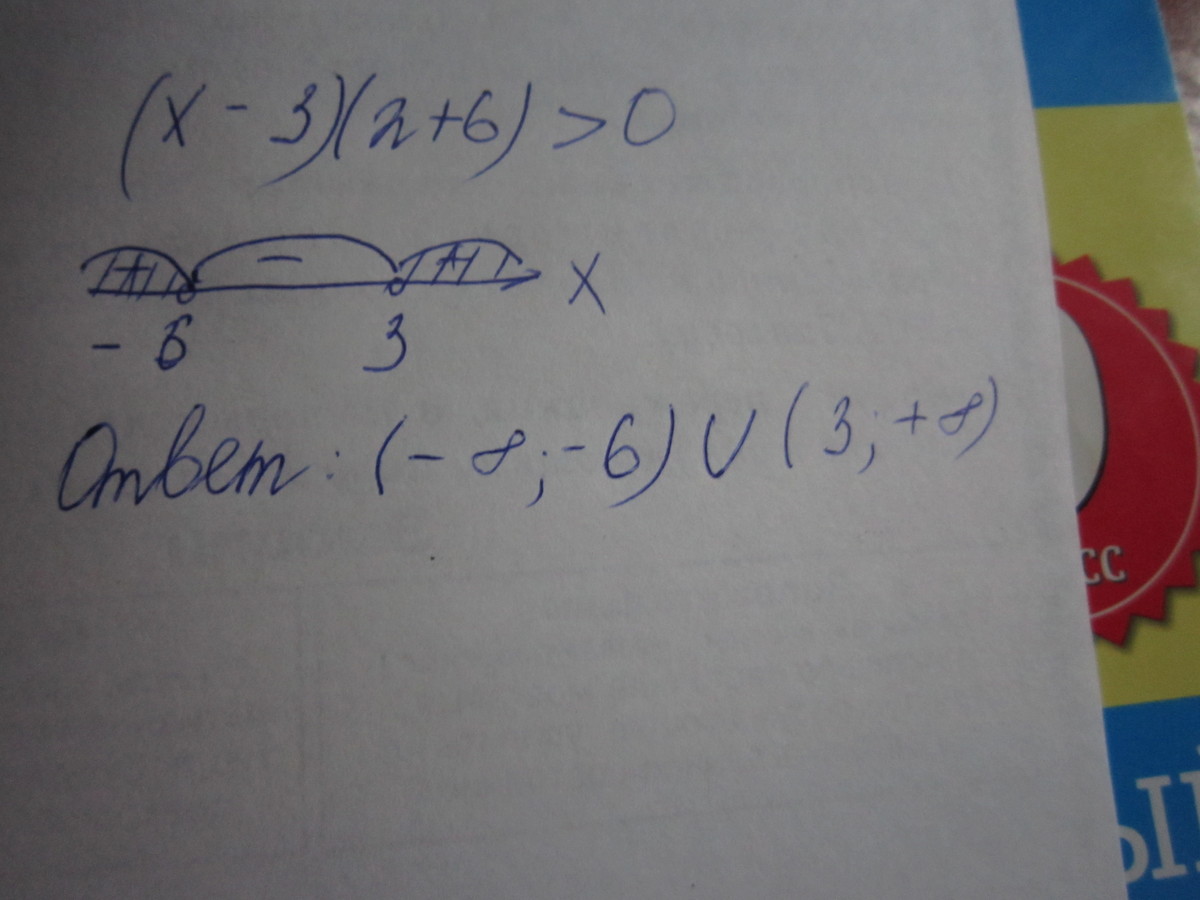 (x - 3)(x+6) > 0
+ - + x
- 6 3
Ответ: (- ∞; -6) ∪ (3; +∞)
СС
ЫЙ